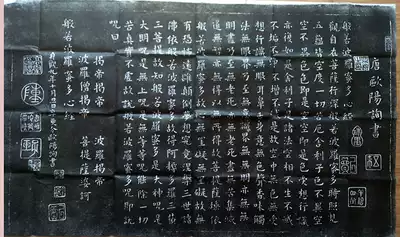 唐歐陽詢書
般若波羅蜜多心經
觀自在菩薩行深般若波羅蜜多時照見
五蘊皆空度一切苦厄舍利子色不異空
空不異色色即是空空即是色受想行識
亦復如是舍利子是諸法空相不生不滅
不垢不淨不增不減是故空中無色無受
想行識無眼耳鼻舌身意無色聲香味觸
法無眼界乃至無意識界無無明亦無無
明盡乃至無老死亦無老死盡無苦集滅
道無智亦無得以無所得故菩提薩埵依
般若波羅蜜多故心無罣礙無罣礙故無
有恐怖遠離顛倒夢想究竟涅槃三世諸
佛依般若波羅蜜多故得阿耨多羅三藐
三菩提故知般若波羅蜜多是大神咒是
大明咒是無上咒是無等等咒能除一切
苦真實不虛故說般若波羅蜜多咒即說
咒曰
揭帝揭帝 波羅揭帝
波羅僧揭帝 菩提薩婆訶
般若波羅蜜多心經